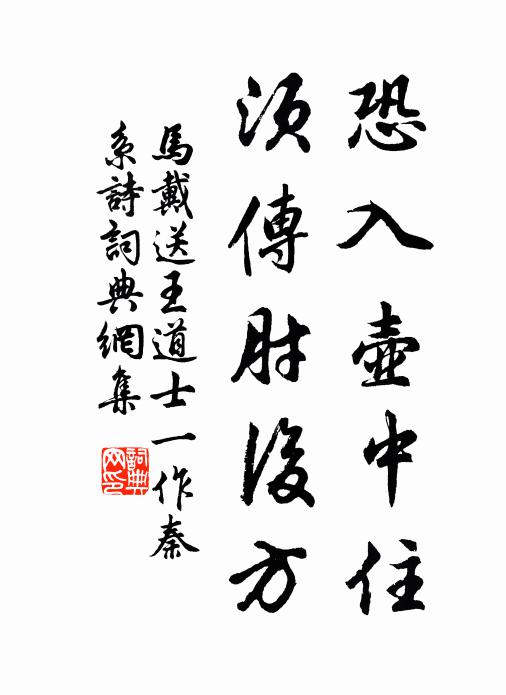 恐入壺中住
須傳肘後方
馬戴送王道士一作秦
系詩詞典網集
詞典网印